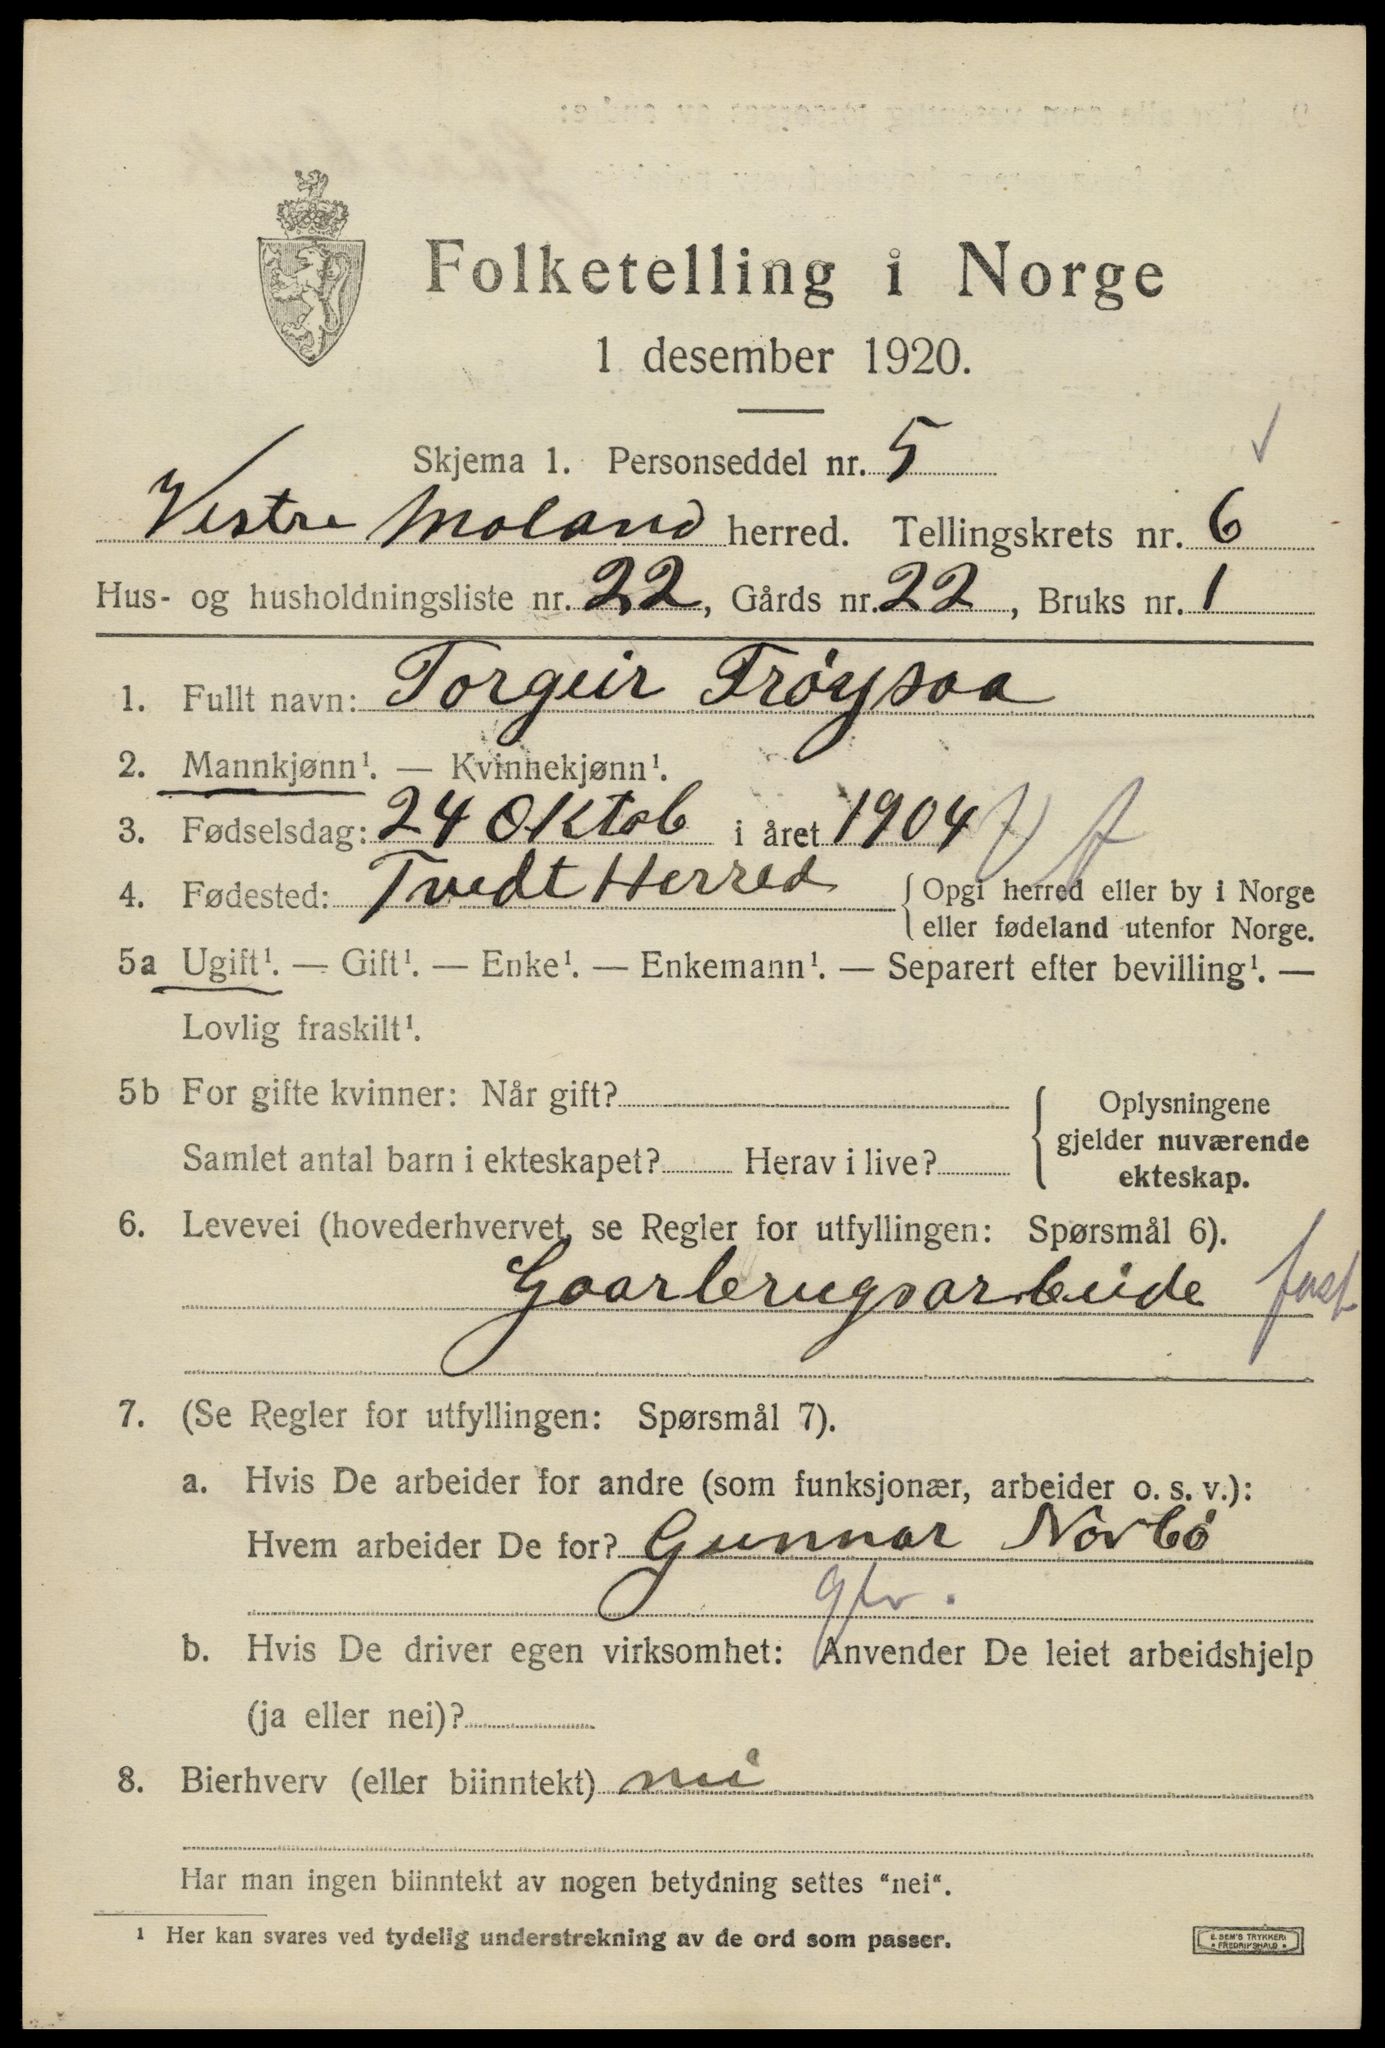 Folketelling i Norge
1 desember 1920.
Skjema 1. Personseddel nr. 5
Vestre Moland herred. Tellingskrets nr. 6
Hus- og husholdningsliste nr. 22, Gårds nr. 22, Bruks nr. 1
1. Fullt navn: Torgeir Trøysaa
2. Mannkjønn¹. — Kvinnekjønn¹.
3. Fødselsdag: 24 Oktob i året 1904
4. Fødested: Tvedt Herred {Opgi herred eller by i Norge
eller fødeland utenfor Norge.
5a Ugift¹. — Gift¹. — Enke¹. — Enkemann¹. — Separert efter bevilling¹. —
Lovlig fraskilt¹.
5b For gifte kvinner: Når gift?
Samlet antal barn i ekteskapet? Herav i live?
Oplysningene
gjelder nuværende
ekteskap.
6. Levevei (hovederhvervet, se Regler for utfyllingen: Spørsmål 6).
Gaarbrugsarbeide fast
7. (Se Regler for utfyllingen: Spørsmål 7).
a. Hvis De arbeider for andre (som funksjonær, arbeider o. s. v.):
Hvem arbeider De for? Gunnar Norbø
gbr.
b. Hvis De driver egen virksomhet: Anvender De leiet arbeidshjelp
(ja eller nei)?
8. Bierhverv (eller biinntekt) nei
Har man ingen biinntekt av nogen betydning settes "nei".
¹ Her kan svares ved tydelig understrekning av de ord som passer.
E. SEM'S TRYKKERI
FREDRIKSHALD